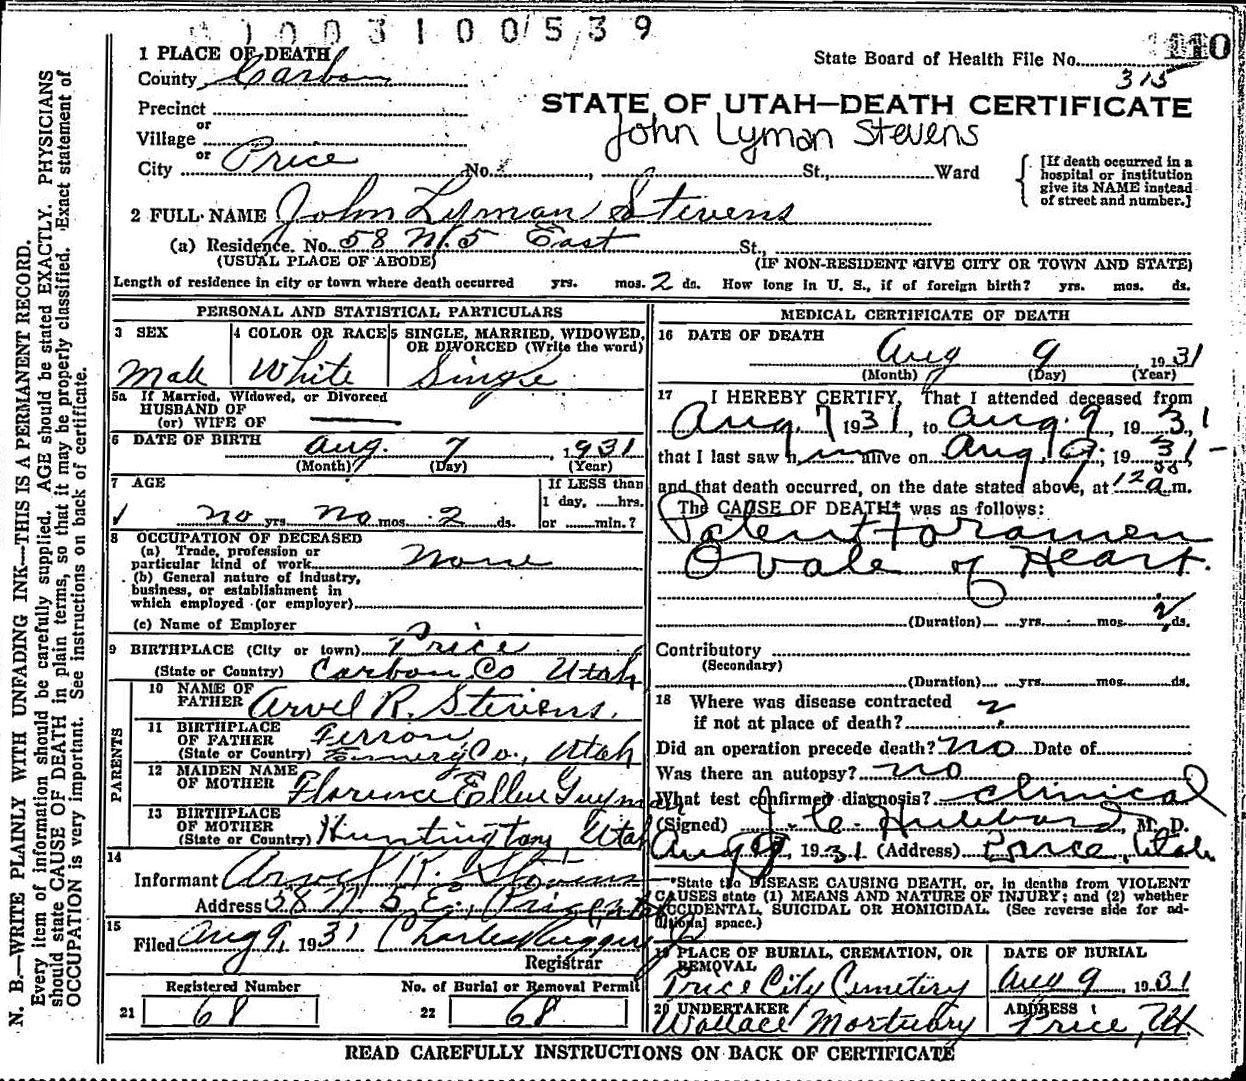 1003100539
1 PLACE OF DEATH
County Carbon
State Board of Health File No. 315
110
Precinct
or
Village
or
City Price No. St., Ward
STATE OF UTAH—DEATH CERTIFICATE
John Lyman Stevens
[If death occurred in a
hospital or institution
give its NAME instead
of street and number.]
2 FULL NAME John Lyman Stevens
(a) Residence. No. 58 N. 5 East St.,
(USUAL PLACE OF ABODE) (IF NON-RESIDENT GIVE CITY OR TOWN AND STATE)
Length of residence in city or town where death occurred yrs. mos. 2 ds. How long in U. S., if of foreign birth? yrs. mos. ds.
PERSONAL AND STATISTICAL PARTICULARS
3 SEX
Male
4 COLOR OR RACE
White
5 SINGLE, MARRIED, WIDOWED,
OR DIVORCED (Write the word)
Single
5a If Married, Widowed, or Divorced
HUSBAND OF
(or) WIFE OF
6 DATE OF BIRTH Aug. 7, 1931
(Month) (Day) (Year)
7 AGE
no yrs. no mos. 2 ds.
If LESS than
1 day, hrs.
or min.?
8 OCCUPATION OF DECEASED
(a) Trade, profession or
particular kind of work None
(b) General nature of industry,
business, or establishment in
which employed (or employer)
(c) Name of Employer
9 BIRTHPLACE (City or town) Price
(State or Country) Carbon Co Utah
PARENTS
10 NAME OF
FATHER Arvel R. Stevens.
11 BIRTHPLACE
OF FATHER Ferron
(State or Country) Emery Co., Utah
12 MAIDEN NAME
OF MOTHER Florence Ellen Guymon
13 BIRTHPLACE
OF MOTHER
(State or Country) Huntington Utah
14
Informant Arvel R. Stevens
Address 58 N. 5 E., Price, Utah
15
Filed Aug 9, 1931 Charles
Registrar
Registered Number
21 68
No. of Burial or Removal Permit
22 68
MEDICAL CERTIFICATE OF DEATH
16 DATE OF DEATH
Aug 9 1931
(Month) (Day) (Year)
17 I HEREBY CERTIFY, That I attended deceased from
Aug. 7 1931, to Aug. 9, 1931
that I last saw him alive on Aug. 9, 1931
and that death occurred, on the date stated above, at 12 a.m.
The CAUSE OF DEATH* was as follows:
Patent Foramen
Ovale of Heart.
(Duration) yrs. mos. 2 ds.
Contributory
(Secondary)
(Duration) yrs. mos. ds.
18 Where was disease contracted
if not at place of death?
Did an operation precede death? no Date of
Was there an autopsy? no
What test confirmed diagnosis? Clinical
(Signed) J. C. Hubbard, M. D.
Aug 9, 1931 (Address) Price, Utah
*State the DISEASE CAUSING DEATH, or, in deaths from VIOLENT
CAUSES state (1) MEANS AND NATURE OF INJURY; and (2) whether
ACCIDENTAL, SUICIDAL OR HOMICIDAL. (See reverse side for ad-
ditional space.)
19 PLACE OF BURIAL, CREMATION, OR
REMOVAL
Price City Cemetery
DATE OF BURIAL
Aug 9 1931
20 UNDERTAKER
Wallace Mortuary
ADDRESS
Price, Ut.
READ CAREFULLY INSTRUCTIONS ON BACK OF CERTIFICATE
N. B.—WRITE PLAINLY WITH UNFADING INK—THIS IS A PERMANENT RECORD.
Every item of information should be carefully supplied. AGE should be stated EXACTLY. PHYSICIANS
should state CAUSE OF DEATH in plain terms, so that it may be properly classified. Exact statement of
OCCUPATION is very important. See instructions on back of certificate.